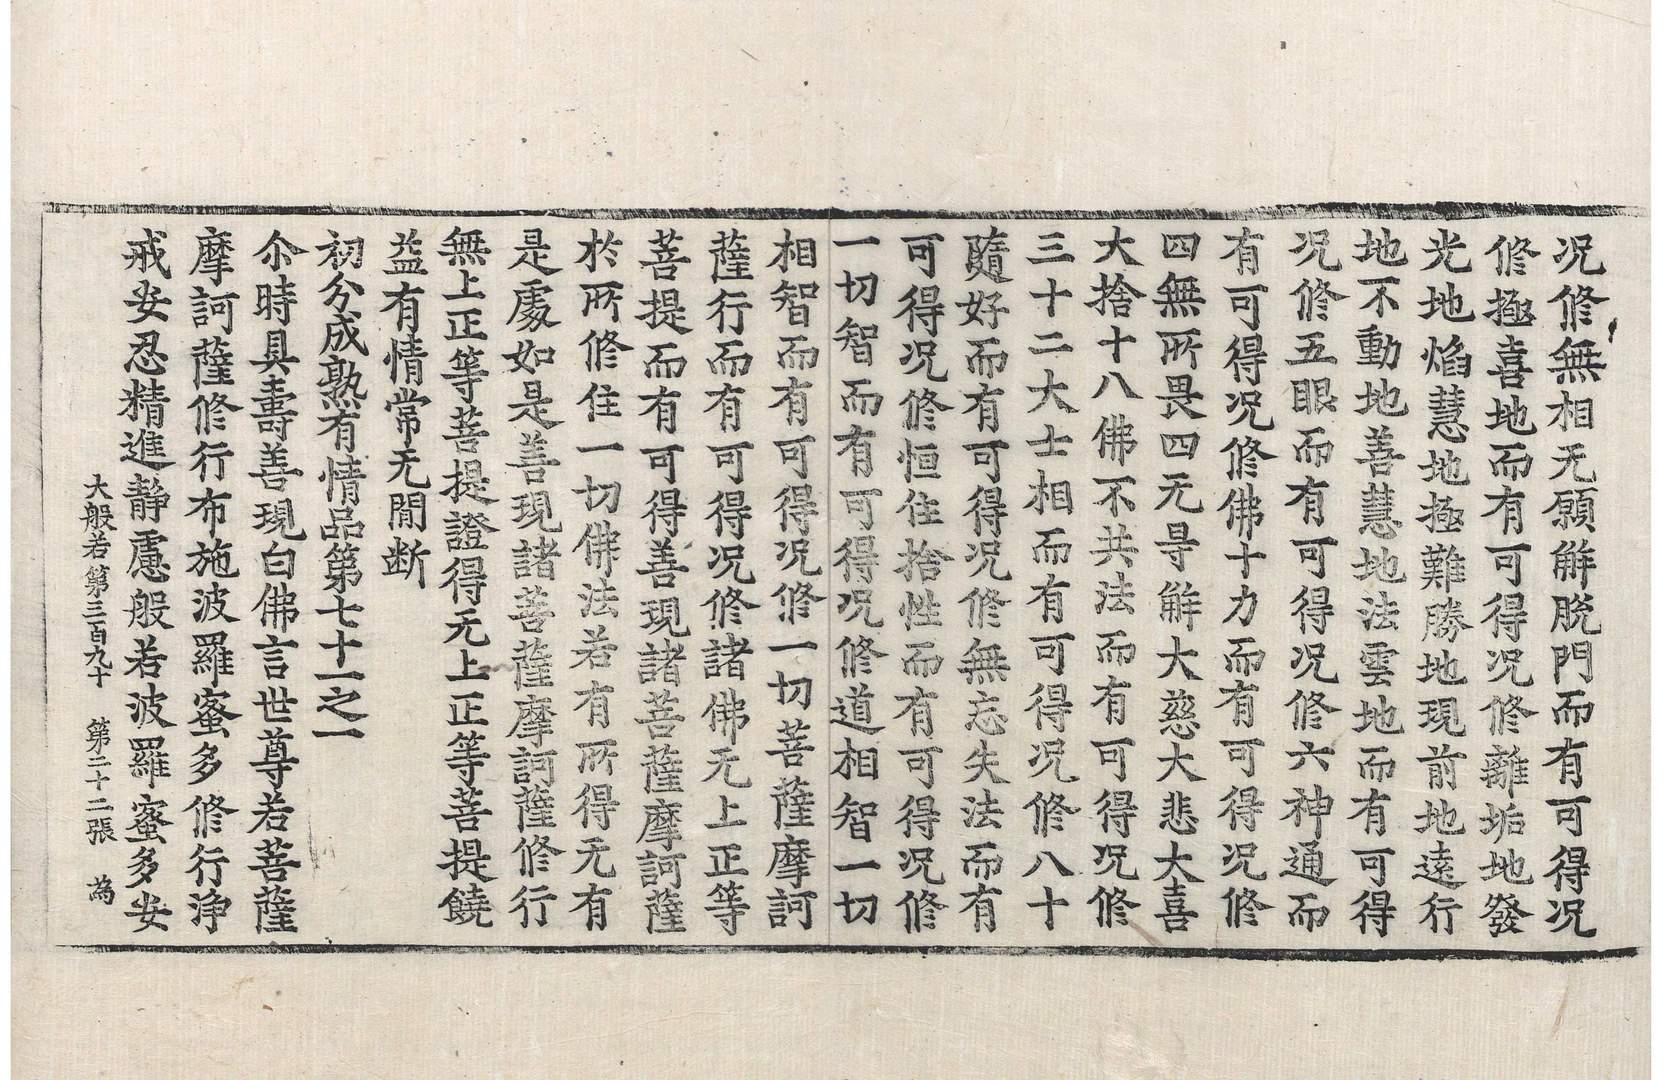 况修無相无願解脫門而有可得况
修極喜地而有可得况修離垢地發
光地焰慧地極難勝地現前地遠行
地不動地善慧地法雲地而有可得
况修五眼而有可得况修六神通而
有可得况修佛十力而有可得况修
四無所畏四无㝵解大慈大悲大喜
大捨十八佛不共法而有可得况修
三十二大士相而有可得况修八十
隨好而有可得况修無忘失法而有
可得况修恒住捨性而有可得况修
一切智而有可得况修道相智一切
相智而有可得况修一切菩薩摩訶
薩行而有可得况修諸佛无上正等
菩提而有可得善現諸菩薩摩訶薩
於所修住一切佛法若有所得无有
是處如是善現諸菩薩摩訶薩修行
無上正等菩提證得无上正等菩提饒
益有情常无閒断
初分成熟有情品第七十一之一
尒時具壽善現白佛言世尊若菩薩
摩訶薩修行布施波羅蜜多修行淨
戒安忍精進靜慮般若波羅蜜多安
大般若第三百九十 第二十二張 為